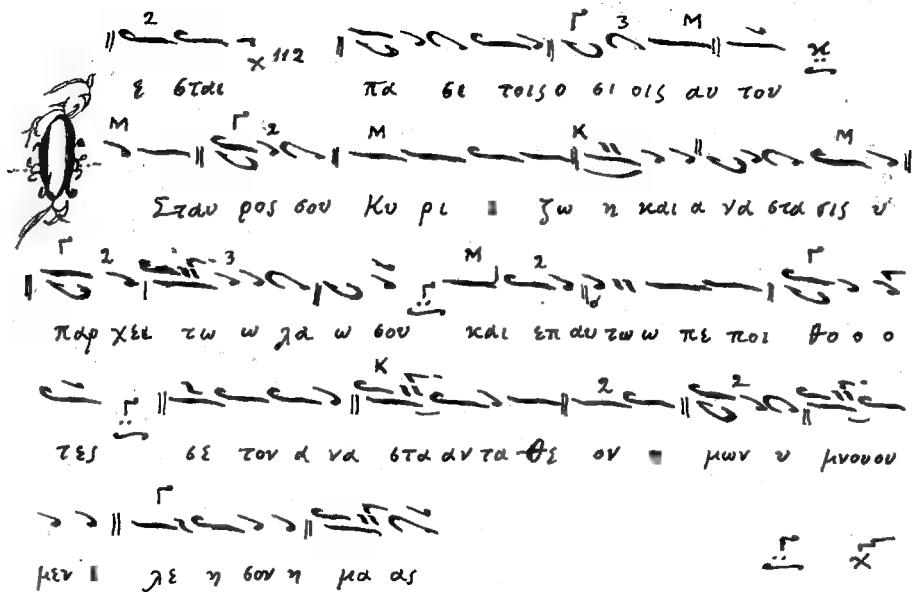 2 Γ 3 Μ
χ 112
ε σται πα σι τοις ο σι οις αυ του
Μ Γ 2 Μ Κ Μ
Ο Σταυ ρος σου Κυ ρι ζω η και α να στα σις υ
Γ 2 3 Μ 2 Γ
παρ χει τω ω λα ω σου και επ αυ τω ω πε ποι θο ο ο
2 Κ 2 2
τες σε τον α να στα αν τα Θε ον μων υ μνουου
Γ
μεν λε η σον η μα ας